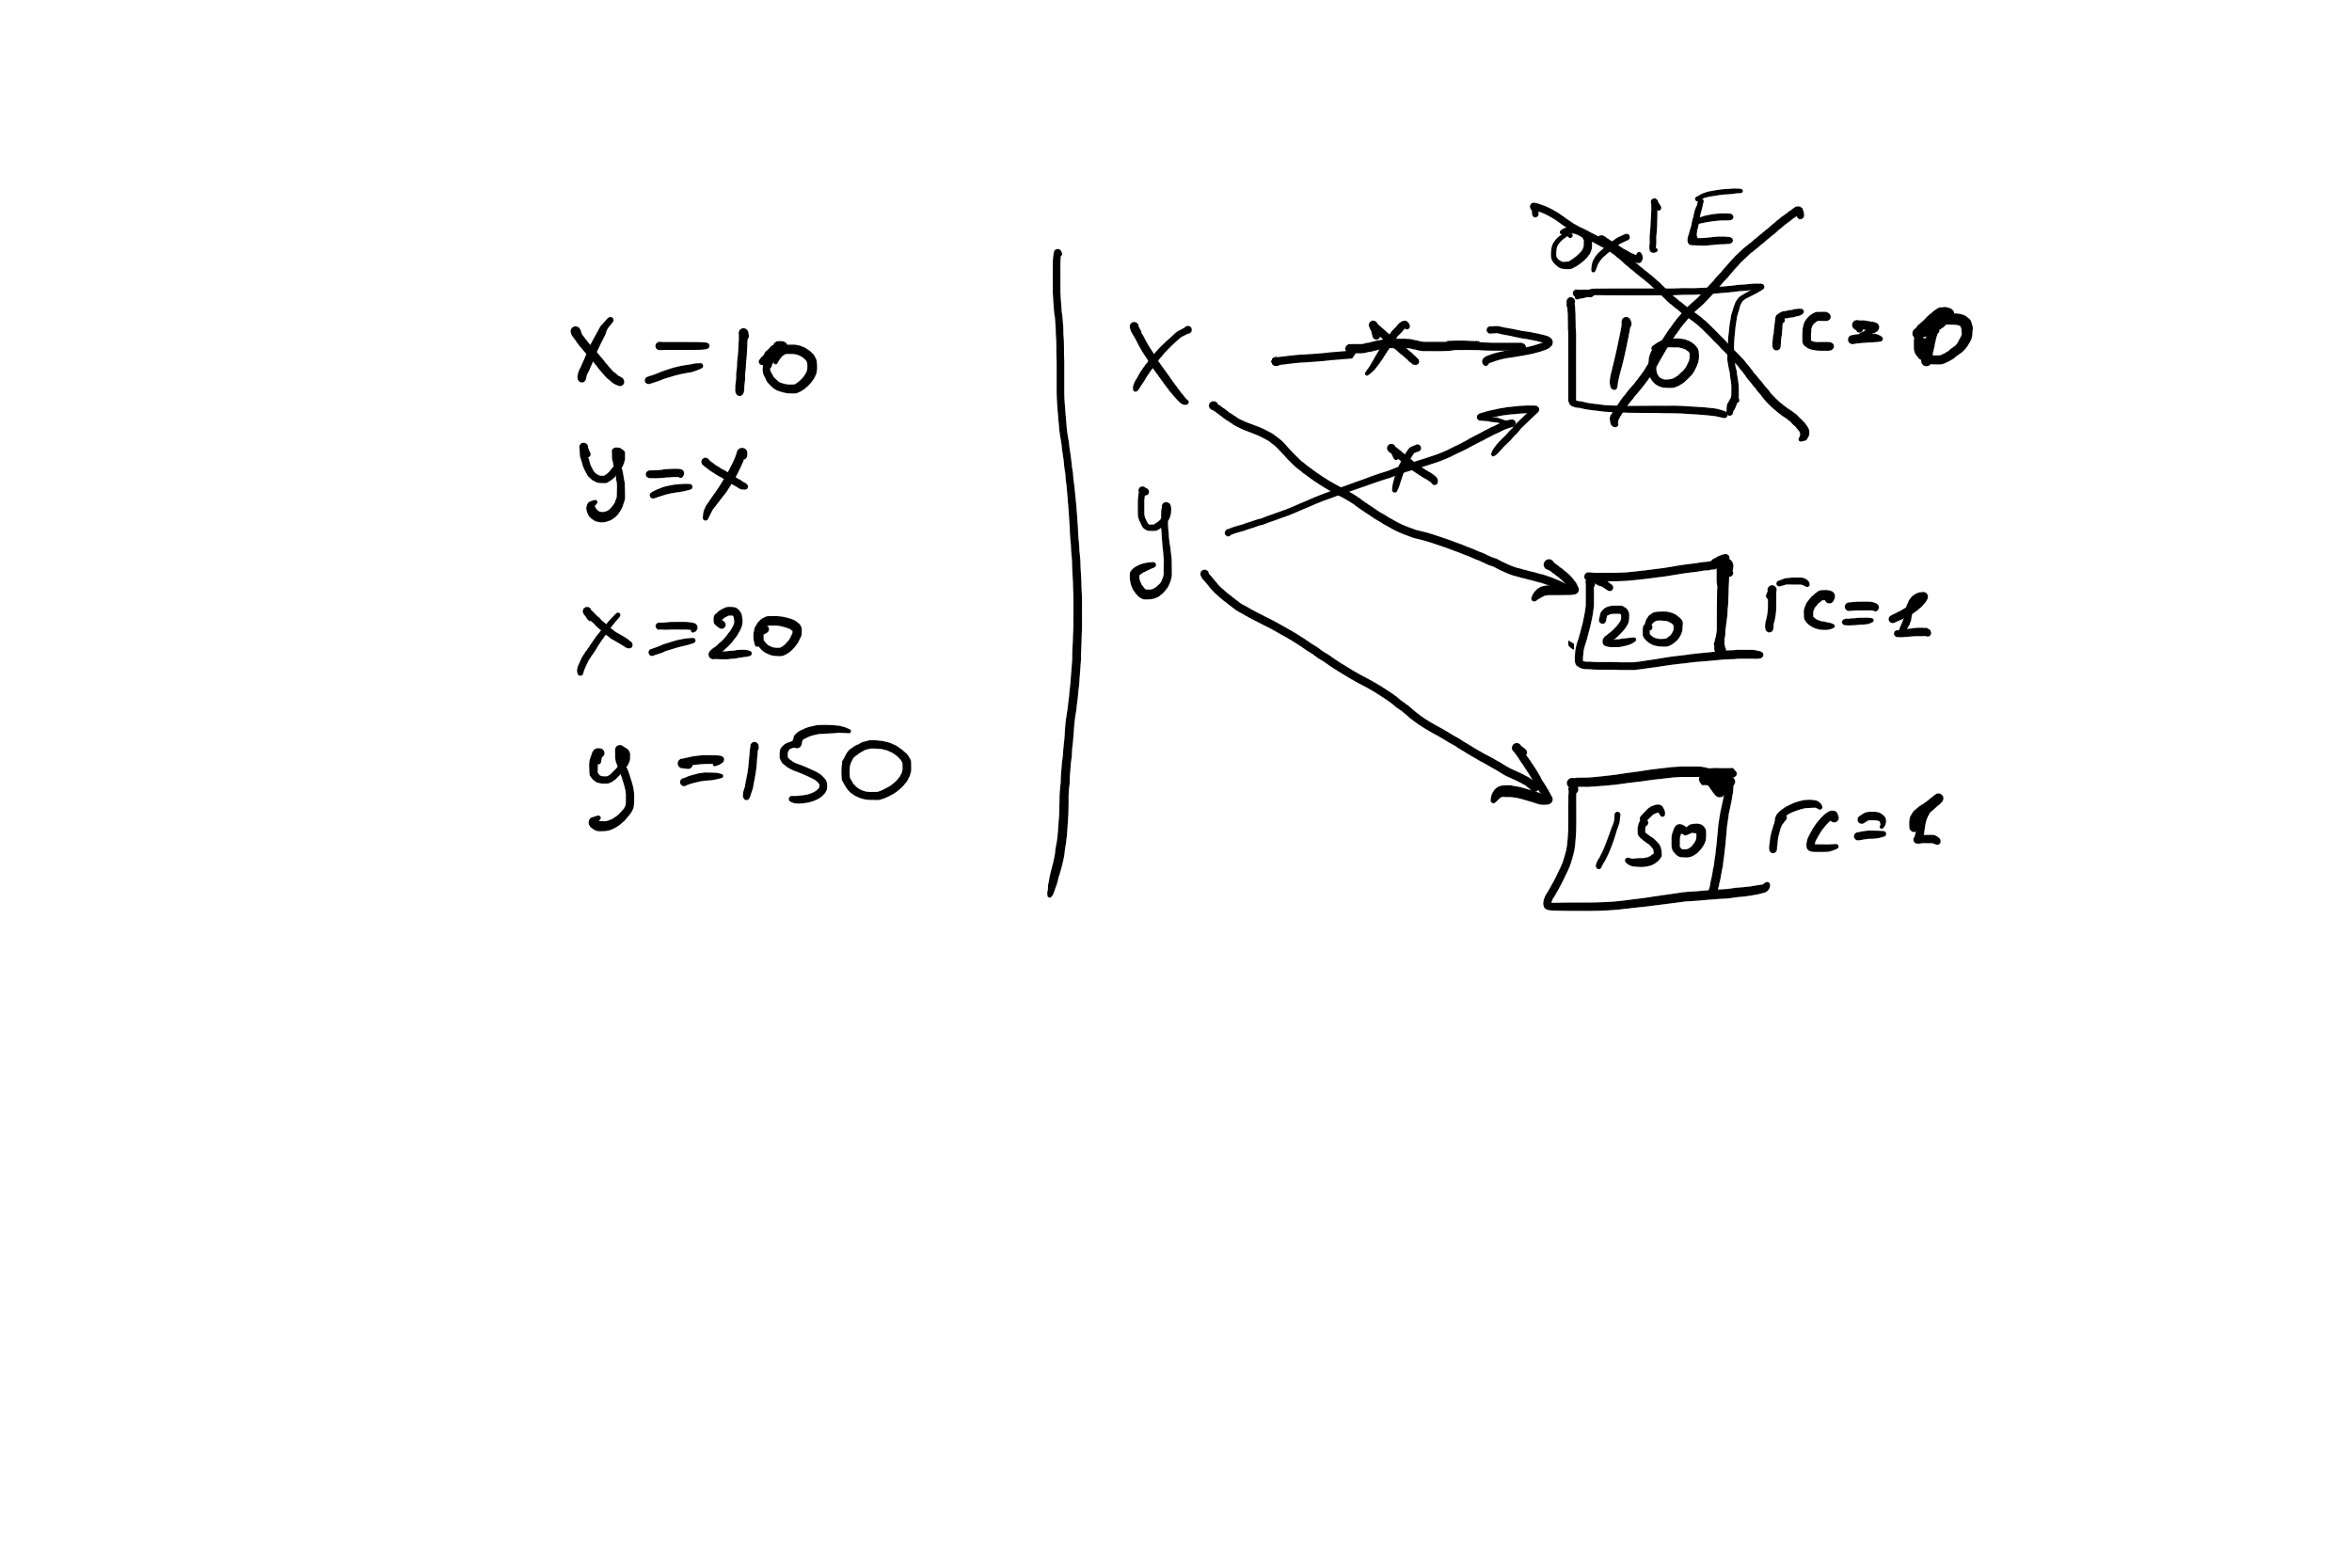 x = 10
y = x
x = 20
y = 150
x
y
0x1E
10
rc = 0
20
rc = 1
150
rc = 1